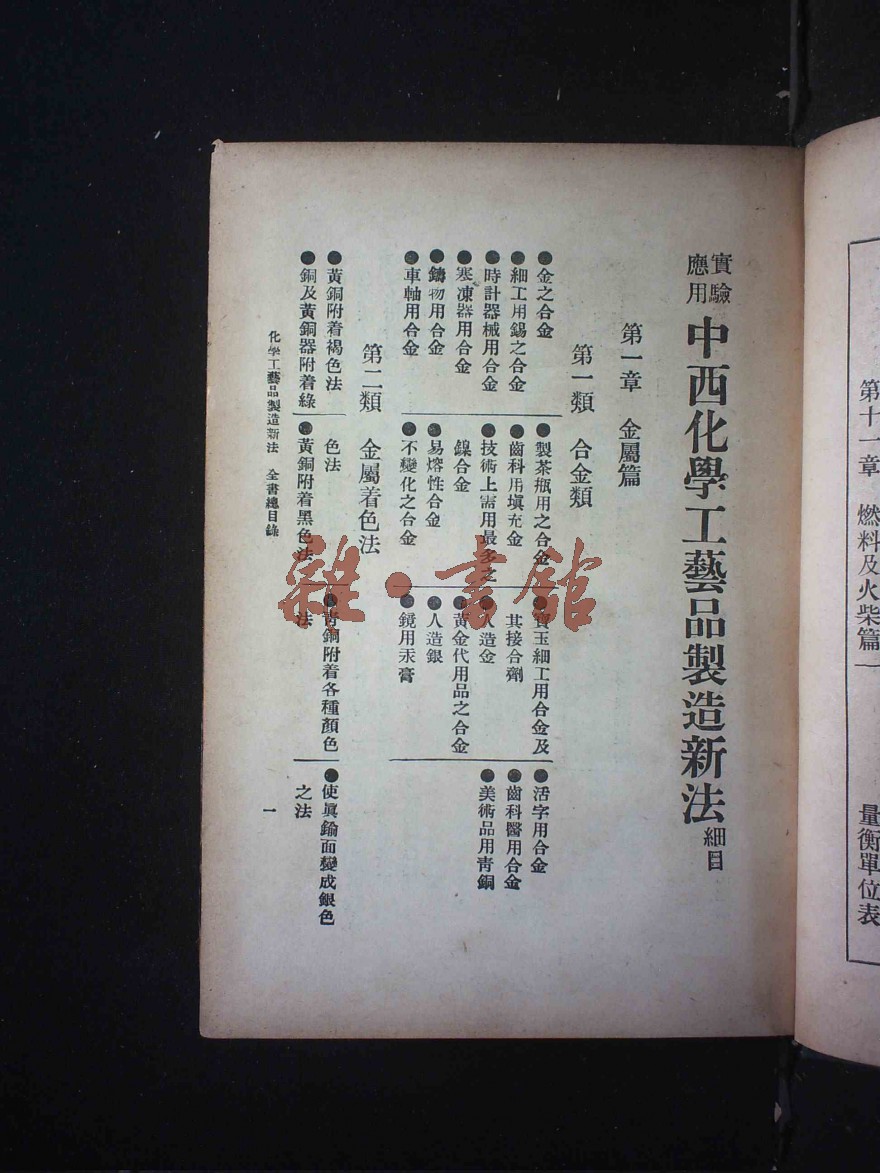 第十一章　燃料及火柴篇
量衡單位表
實驗應用 中西化學工藝品製造新法 細目
第一章　金屬篇
第一類　合金類
●金之合金
●製茶瓶用之合金
●寶玉細工用合金及
●活字用合金
●細工用錫之合金
●齒科用塡充金
其接合劑
●齒科醫用合金
●時計器械用合金
●技術上需用最多之
●人造金
●美術品用靑銅
●寒凍器用合金
鎳合金
●黃金代用品之合金
●鑄物用合金
●易熔性合金
●人造銀
●車軸用合金
●不變化之合金
●鏡用汞膏
第二類　金屬着色法
●黃銅附着褐色法
色法
●靑銅附着各種顏色
●使眞鍮面變成銀色
●銅及黃銅器附着綠
●黃銅附着黑色法
法
之法
化學工藝品製造新法　全書總目錄
一
雜·書館